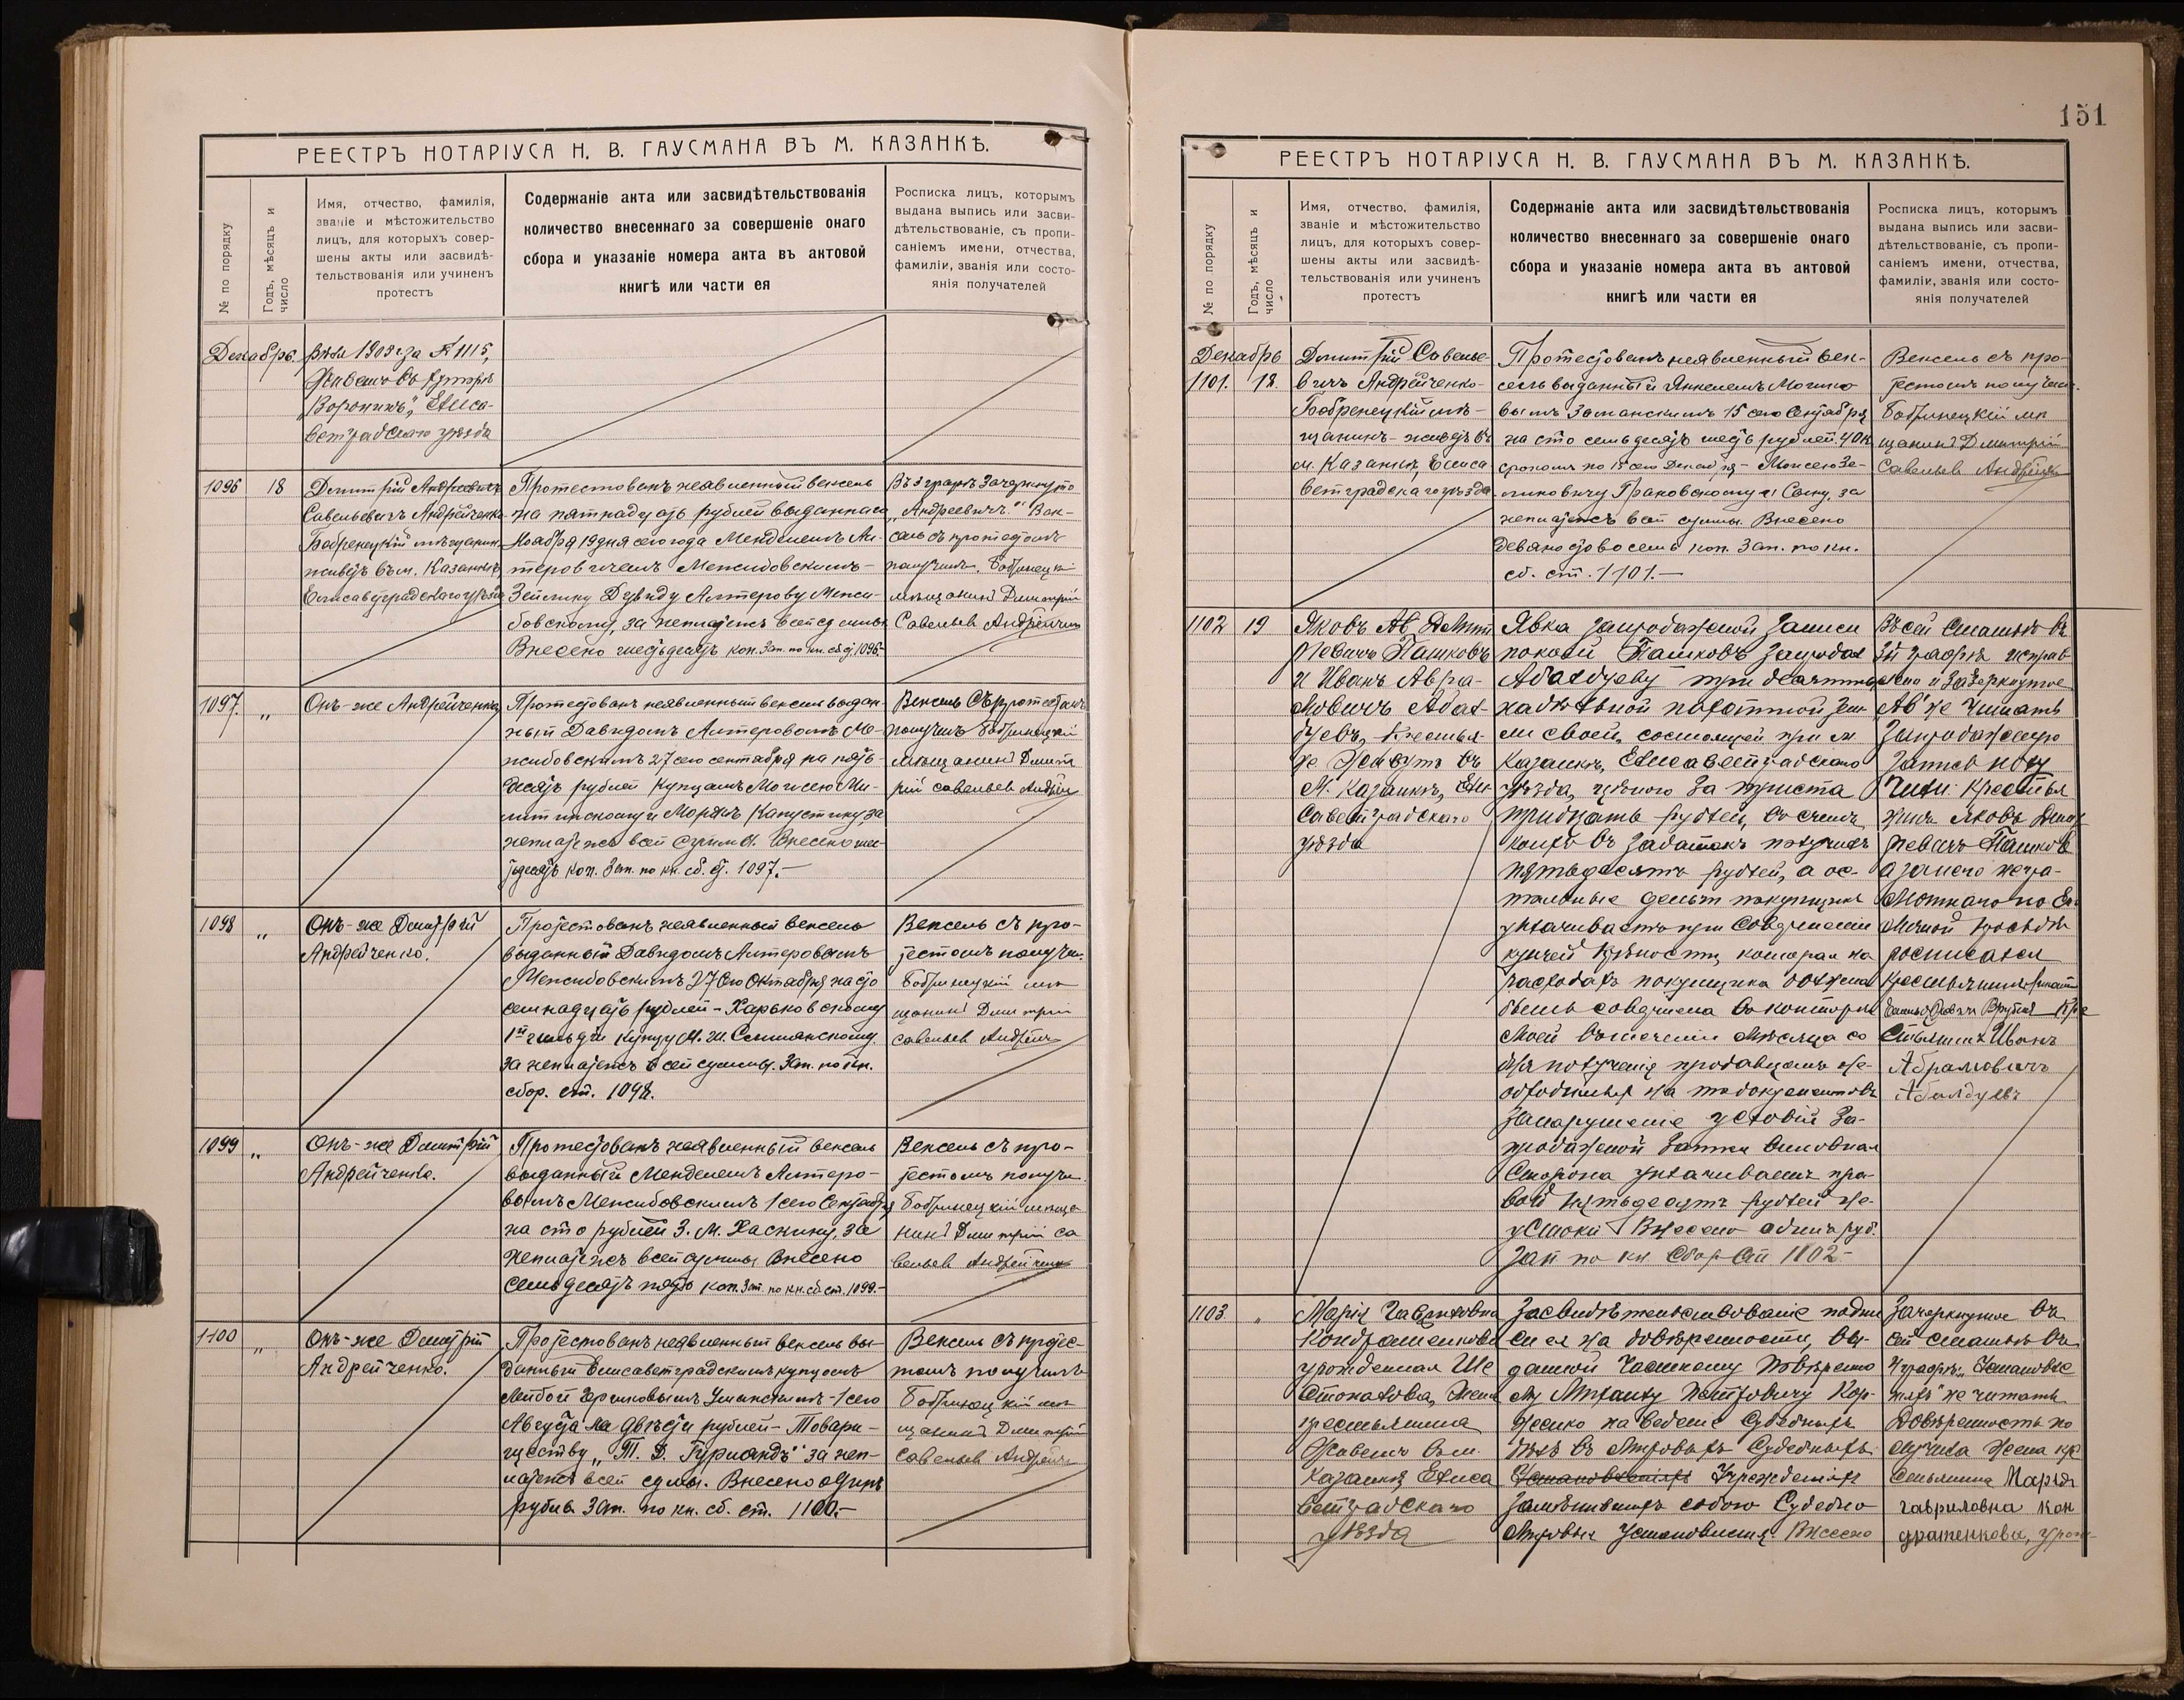 РЕЕСТРЪ НОТАРІУСА Н. В. ГАУСМАНА ВЪ М. КАЗАНКѢ.
№ по порядку
Годъ, мѣсяцъ и
число
Имя, отчество, фамилія,
званіе и мѣстожительство
лицъ, для которыхъ совер-
шены акты или засвидѣ-
тельствованія или учиненъ
протестъ
Содержаніе акта или засвидѣтельствованія
количество внесеннаго за совершеніе онаго
сбора и указаніе номера акта въ актовой
книгѣ или части ея
Росписка лицъ, которымъ
выдана выпись или засви-
дѣтельствованіе, съ пропи-
саніемъ имени, отчества,
фамиліи, званія или состо-
янія получателей
Декабрь.
1903 г. за № 1115,
Живетъ въ хуторѣ
Елиса-
ветградскаго уѣзда
1096
18
Дмитрій Андреевичъ
Савельевичъ Андрейченко
Бобринецкій мѣщанин.
живетъ въ м. Казанкѣ,
Елисаветградскаго уѣзда
Протестованъ неявленный вексель
на пятнадцать рублей выданный
Ноября 19 дня сего года Менделемъ Ал-
теровичемъ Менжибовскимъ-
Давиду Алтерову Менжи-
бовскому, за неплатежъ всей суммы
Внесено шестьдесятъ коп. Зап. по кн. сб. ст. 1096.-
Въ 3 графѣ зачеркнуто
„Андреевичъ." Век-
сель съ протестомъ
получилъ. Бобринецкій
мѣщанинъ Дмитрій
Савельев Андрейченко
1097.
„
Онъ-же Андрейченко
Протестованъ неявленный вексель выдан-
ный Давидомъ Алтеровомъ Ме-
нжибовскимъ 27 сего сентября на пять-
десятъ рублей купцамъ Моисею
и
неплатежъ всей суммы. Внесено шес-
тьдесятъ коп. Зап. по кн. сб. ст. 1097.-
Вексель Съ протестомъ
получилъ Бобринецкій
мѣщанинъ Дмит
рій савельев Андрей
1098
„
Онъ-же Дмитрій
Андрейченко.
Протестованъ неявленный вексель
выданный Давидомъ Алтеровымъ
Менжибовскимъ 27 сего Октября на сто
семнадцать рублей - Харьковскому
1й гильдіи купцу
за неплатежъ всей суммы. Зап. по кн.
сбор. ст. 1098.
Вексель съ про-
тестомъ получи.
Бобринецкій мѣ
щанинъ Дмитрій
савельев Андрейч
1099
„
Онъ-же Дмитрій
Андрейченко.
Протестованъ неявленный вексель
выданный Менделемъ Алтеро-
вымъ Менжибовскимъ 1 сего Сентября
на сто рублей З. М. Хаскину, за
неплатежъ всей суммы Внесено
семьдесятъ пять коп. Зап. по кн. сб. ст. 1099.-
Вексель съ про-
тестомъ получи
Бобринецкій мѣща
нинъ Дмитрій са
вельев Андрейченк
1100
„
Онъ-же Дмитрій
Андрейченко.
Протестованъ неявленный вексель вы-
данный Елисаветградскимъ купцомъ
Уманскимъ - 1 сего
Августа на двѣсти рублей - Товари-
ществу „Т. Д. Гурландъ" за неп-
латежъ всей суммы. Внесено одинъ
рубль Зап. по кн. сб. ст. 1100.-
Вексель съ протес-
томъ получилъ
Бобринецкій мѣ
щанинъ Дмитрій
савельев Андрейч
151
РЕЕСТРЪ НОТАРІУСА Н. В. ГАУСМАНА ВЪ М. КАЗАНКѢ.
№ по порядку
Годъ, мѣсяцъ и
число
Имя, отчество, фамилія,
званіе и мѣстожительство
лицъ, для которыхъ совер-
шены акты или засвидѣ-
тельствованія или учиненъ
протестъ
Содержаніе акта или засвидѣтельствованія
количество внесеннаго за совершеніе онаго
сбора и указаніе номера акта въ актовой
книгѣ или части ея
Росписка лицъ, которымъ
выдана выпись или засви-
дѣтельствованіе, съ пропи-
саніемъ имени, отчества,
фамиліи, званія или состо-
янія получателей
Декабрь
1101.
18.
Дмитрій Савелье-
вичъ Андрейченко-
Бобренецкій мѣ-
щанинъ - живетъ въ
м. Казанкѣ, Елиса
ветградскаго уѣзда
Протестованъ неявленный век-
сель выданный
15 сего Сентября
на сто семьдесятъ шесть рублей 40 к
срокомъ по 15 сего Декабря - Моисею Зе-
линовичу Граковскому и Сыну, за
неплатежъ всей суммы. Внесено
девяносто восемь коп. Зап. по кн.
сб. ст. 1101.-
Вексель съ про-
тестомъ получилъ.
Бобринецкій мѣ
щанинъ Дмитрій
Савельев Андрейч
1102
19
Яковъ Ав Дмит
ріевичъ Пашковъ
и Иванъ Авра-
мовичъ Абал-
дуевъ, Крестья-
не Живутъ въ
М. Казанкѣ, Ели
саветградскаго
уѣзда
Явка запродажной записи
Пашковъ запродал
Абалдуеву три десятины
надѣльной пахатной зем
ли своей, состоящей при м
Казанкѣ, Елисаветградскаго
уѣзда, цѣною за триста
тридцать рублей, въ счетъ
коихъ въ задатокъ получилъ
пятьдесятъ рублей, а ос-
тальные деньги покупщикъ
уплачиваетъ при совершеніи
купчей крѣпости, которая на
расходахъ покупщика должна
быть совершена въ конторѣ
моей втеченіи мѣсяца со
дня полученія продавцомъ не-
обходимыхъ на то документовъ
За нарушеніе условій За-
продажной записи виновная
Сторона уплачиваетъ пра-
вой пятьдесятъ рублей не-
устойки Внесено одинъ руб.
Зап по кн Сбор ст 1102-
Въ сей статьѣ въ
3й графѣ исправ-
лено и зачеркнутое
„Ав" не читать
Запродажную
Запись полу
чили: Крестья
нинъ Яковъ Дмит
ріевичъ Пашков
а за него негра-
мотнаго по Ег
личной просьбѣ
росписался
Кре
стьянинъ Иванъ
Абрамовичъ
Абалдуевъ
1103
„
Марія Гавриловна
Кондратенкова
урожденная Ше
стопалова, Жена
крестьянина
Живетъ въ м.
Казанкѣ Елиса
ветградскаго
уѣзда
Засвидѣтельствованіе подпи
си ея на довѣренности, вы-
данной Частному повѣренно
му Петровичу Кор-
женко на веденіе Судебныхъ
дѣлъ въ Мировыхъ Судебныхъ
Установленіяхъ Учрежденіях
замѣнившихъ собою Судебно
Мировыя Установленія. Внесено
Зачеркнутое въ
сей статьѣ въ
4 графѣ: „Установле
ніяхъ" не читать
Довѣренность по
лучила Жена кре
стьянина Марія
гавриловна Кон
дратенкова, урож-